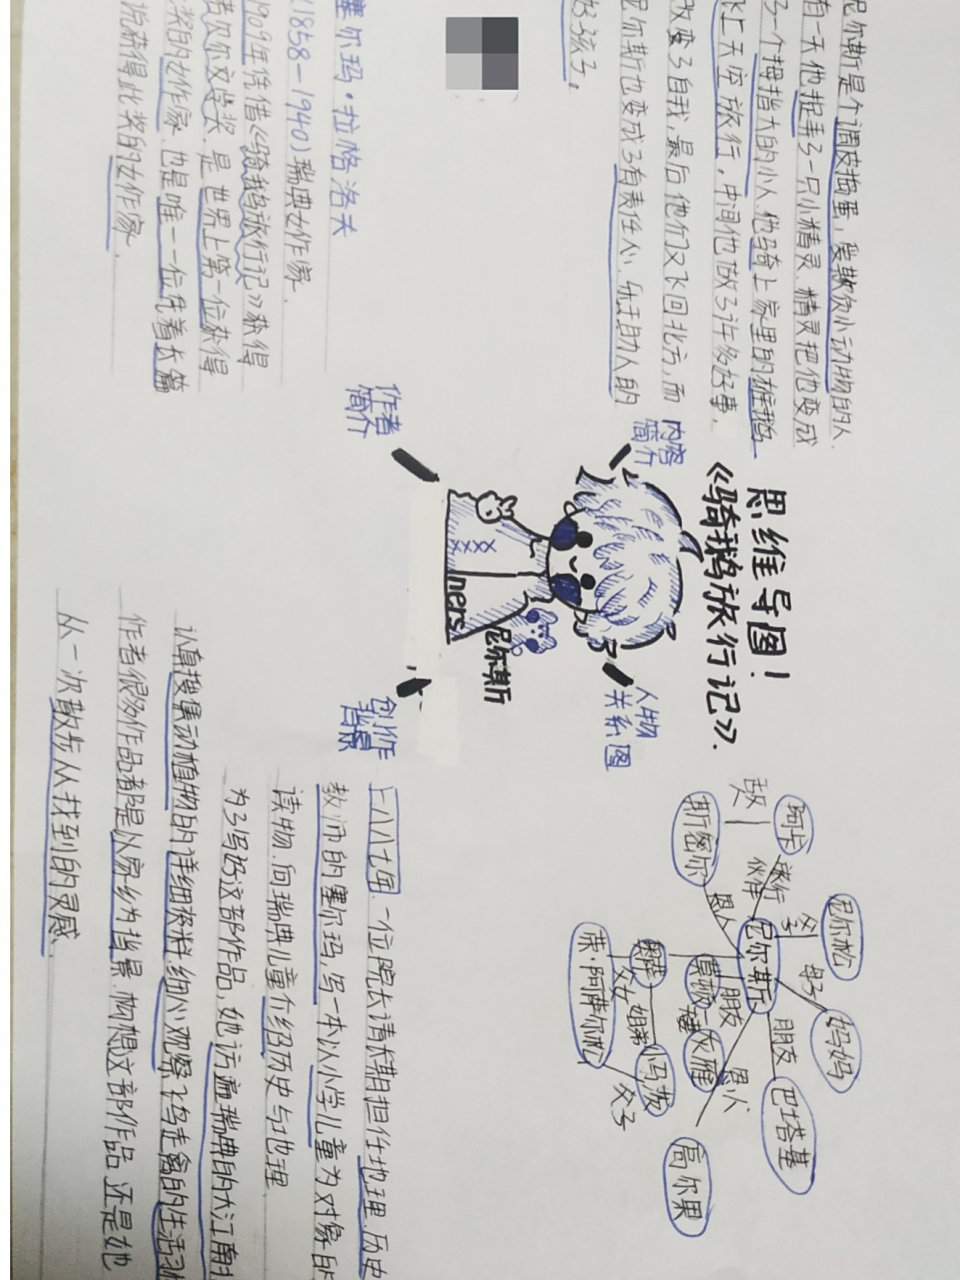 思维导图！
《骑鹅旅行记》.
内容
简介
尼尔斯是个调皮捣蛋，爱欺负小动物的人.
有一天他捉弄了一只小精灵.精灵把他变成
了一个拇指大的小人.他骑上家里的雄鹅
飞上天空旅行，中间他做了许多好事.
改变了自我，最后他们又飞回北方，而
尼尔斯也变成了有责任心.乐于助人的
好孩子。
作者
简介
塞尔玛·拉格洛夫
(1858-1940)瑞典女作家.
1909年凭借《骑鹅旅行记》获得
诺贝尔文学奖.是世界上第一位获得
奖的女作家.也是唯一一位凭着长篇
说获得此奖的女作家.
人物
关系图
阿卡
敌人
斯密尔
旅行
伙伴
恩人
尼尔斯
父子
尼尔松
母子
妈妈
朋友
巴塔基
恩人
高尔果
朋友
莫顿
灰雁
奥萨
姐弟
小马茨
父女
父子
尼尔斯
ners
创作
背景
一八八七年.一位院长请长期担任地理.历史
教师的塞尔玛，写一本以小学儿童为对象的
读物.向瑞典儿童介绍历史与地理
为了写好这部作品，她访遍瑞典的大江南北
认真搜集动植物的详细资料.细心观察飞鸟走禽的生活习
作者很多作品都是以家乡为背景.构想这部作品还是她
从一次散步从找到的灵感.